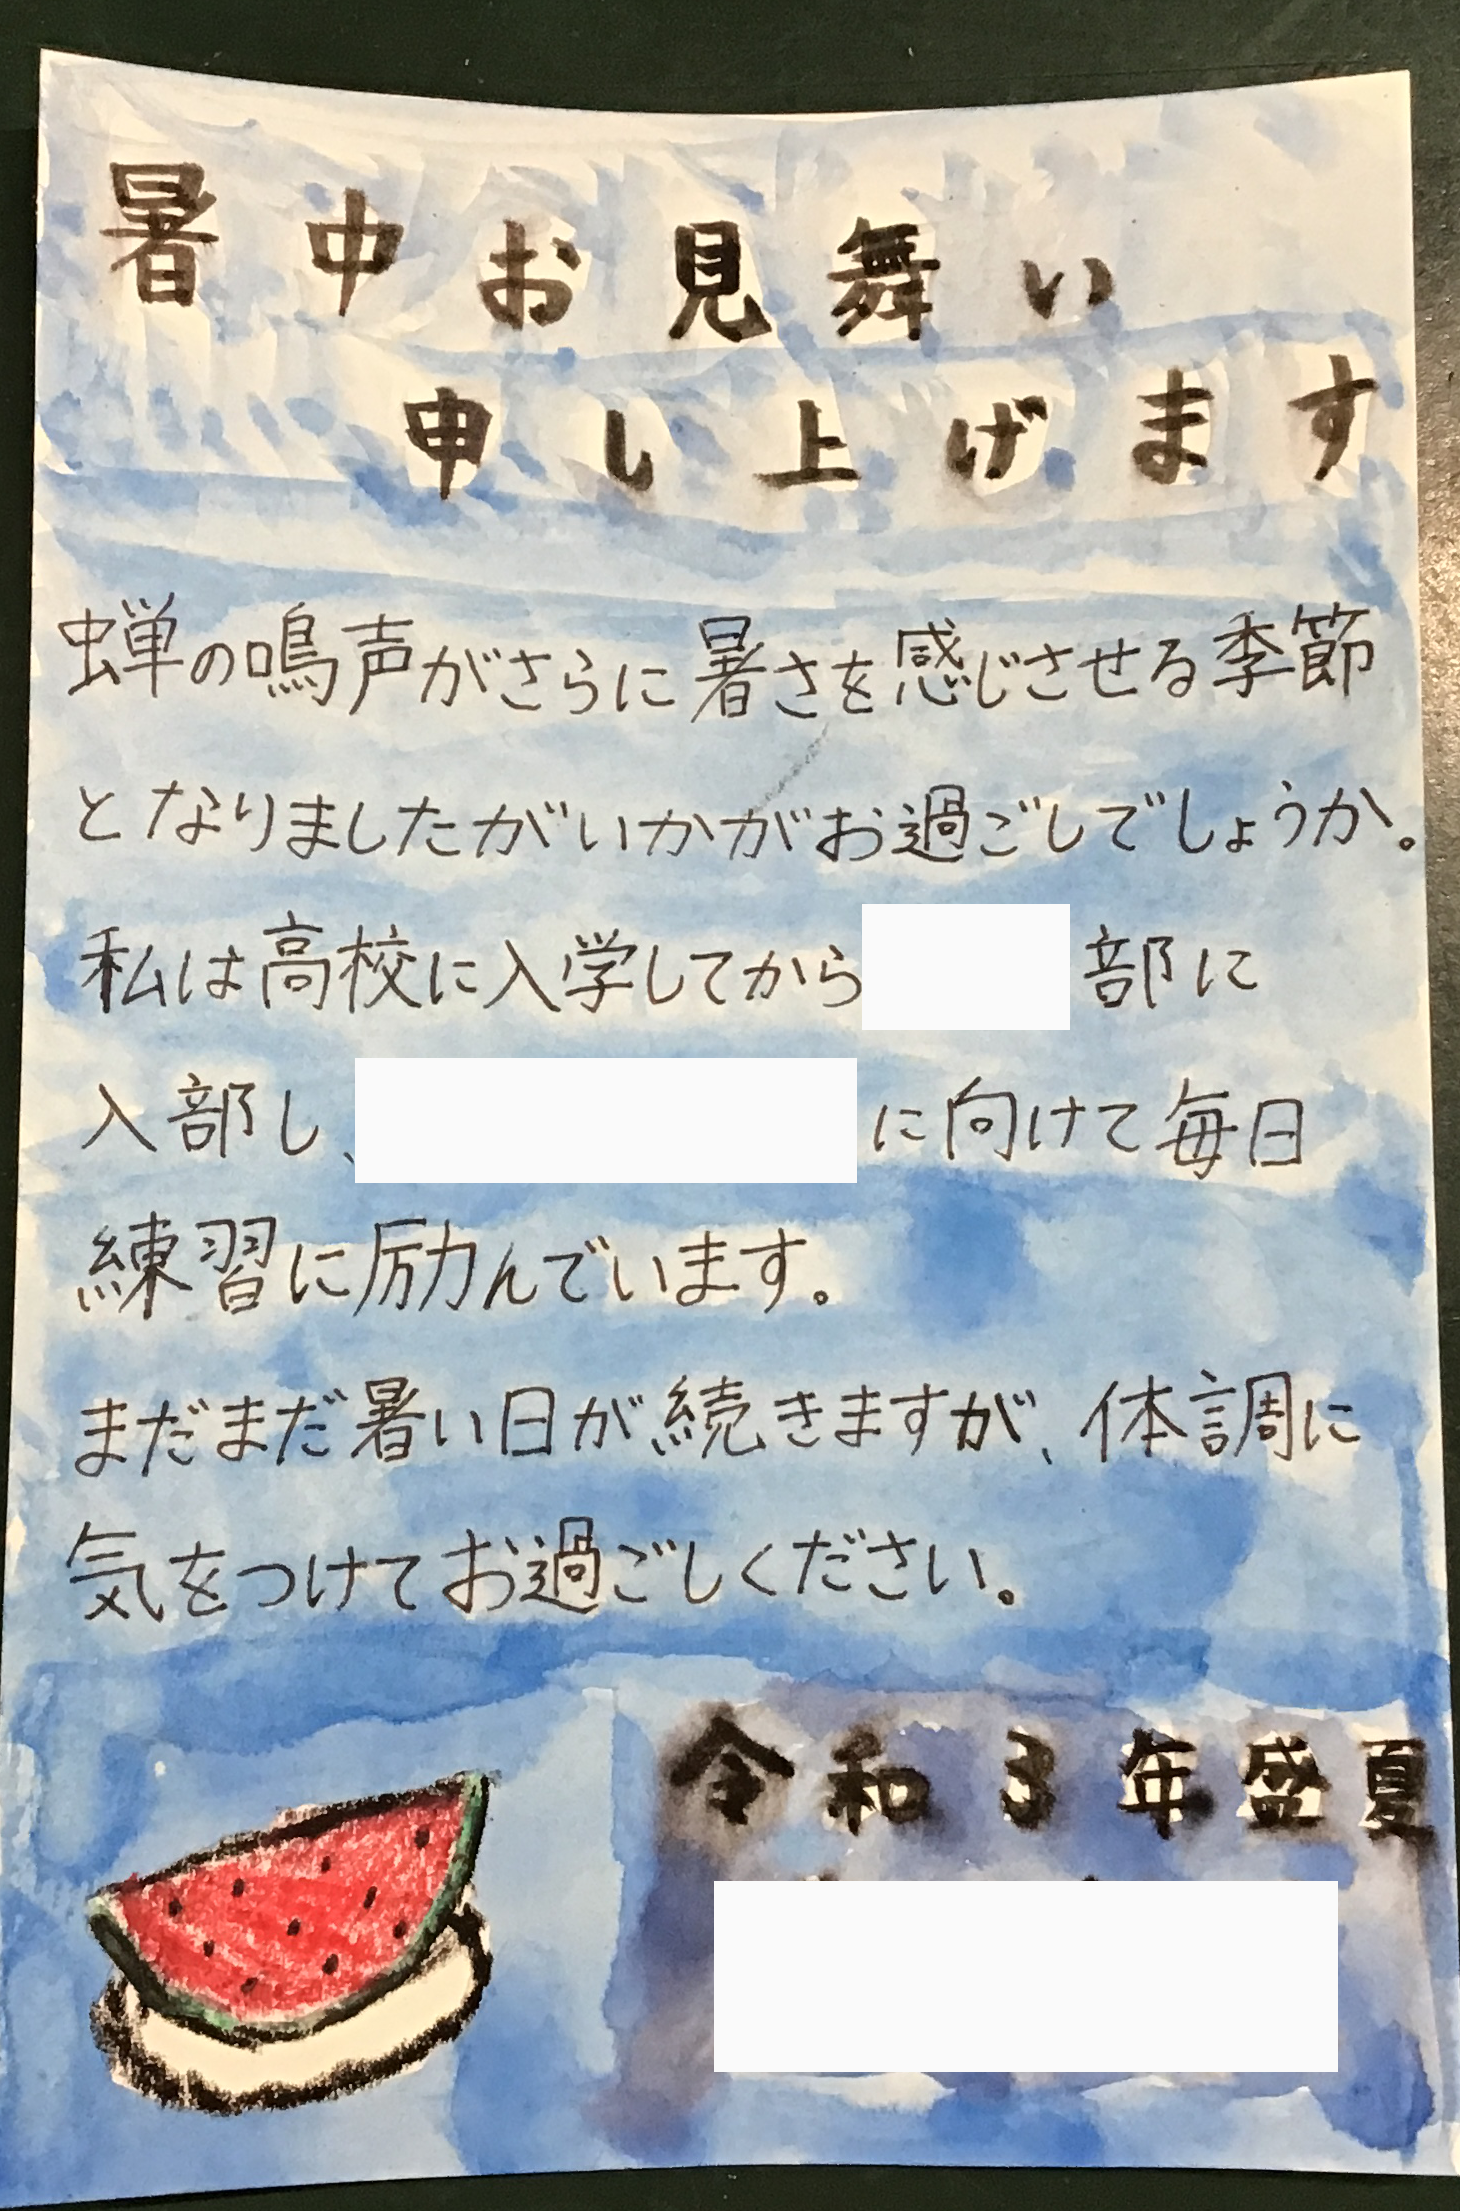 暑中お見舞い
申し上げます
蝉の鳴声がさらに暑さを感じさせる季節
となりましたがいかがお過ごしでしょうか。
私は高校に入学してから 部に
入部し、 に向けて毎日
練習に励んでいます。
まだまだ暑い日が続きますが、体調に
気をつけてお過ごしください。
令和3年盛夏